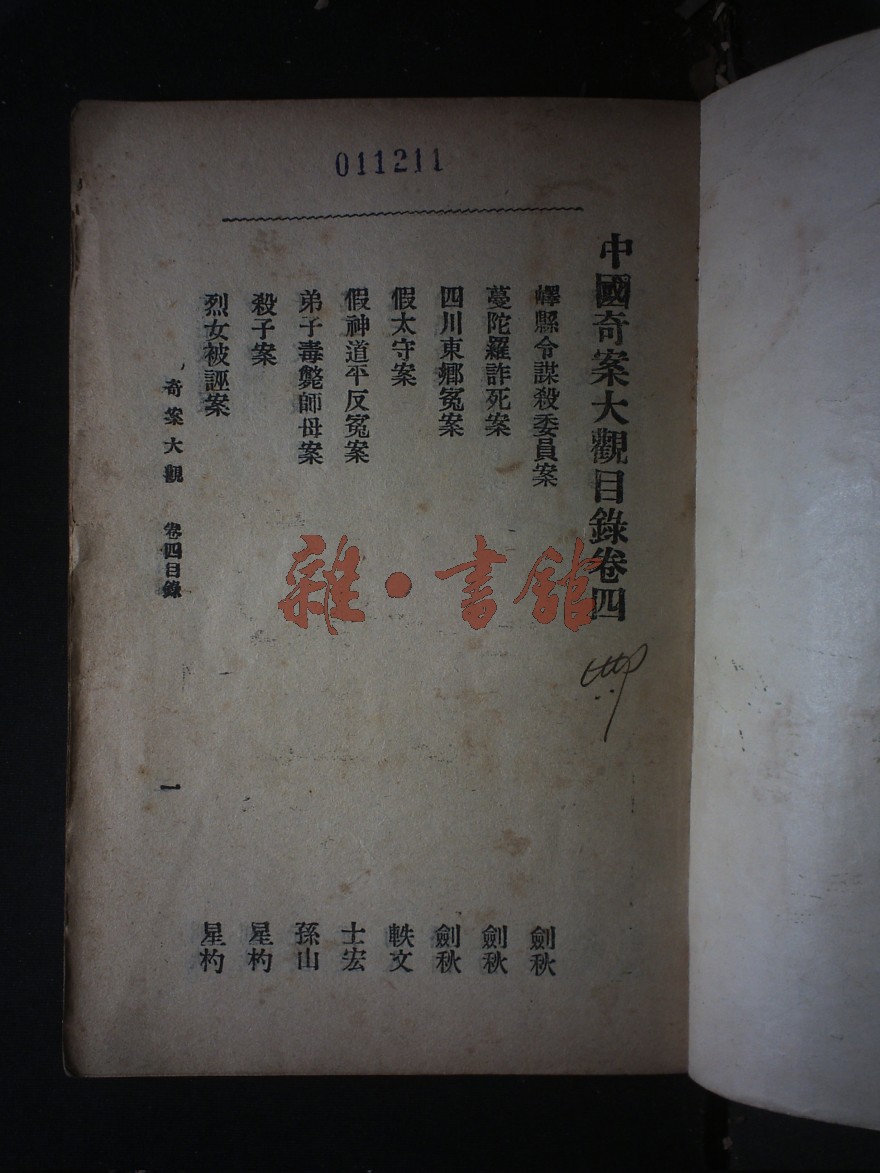 011211
中國奇案大觀目錄卷四
嶧縣令謀殺委員案 劍秋
蔓陀羅詐死案 劍秋
四川東鄉冤案 劍秋
假太守案 軼文
假神道平反冤案 士宏
弟子毒斃師母案 孫山
殺子案 星杓
烈女被誣案 星杓
奇案大觀 卷四目錄 一
雜·書館